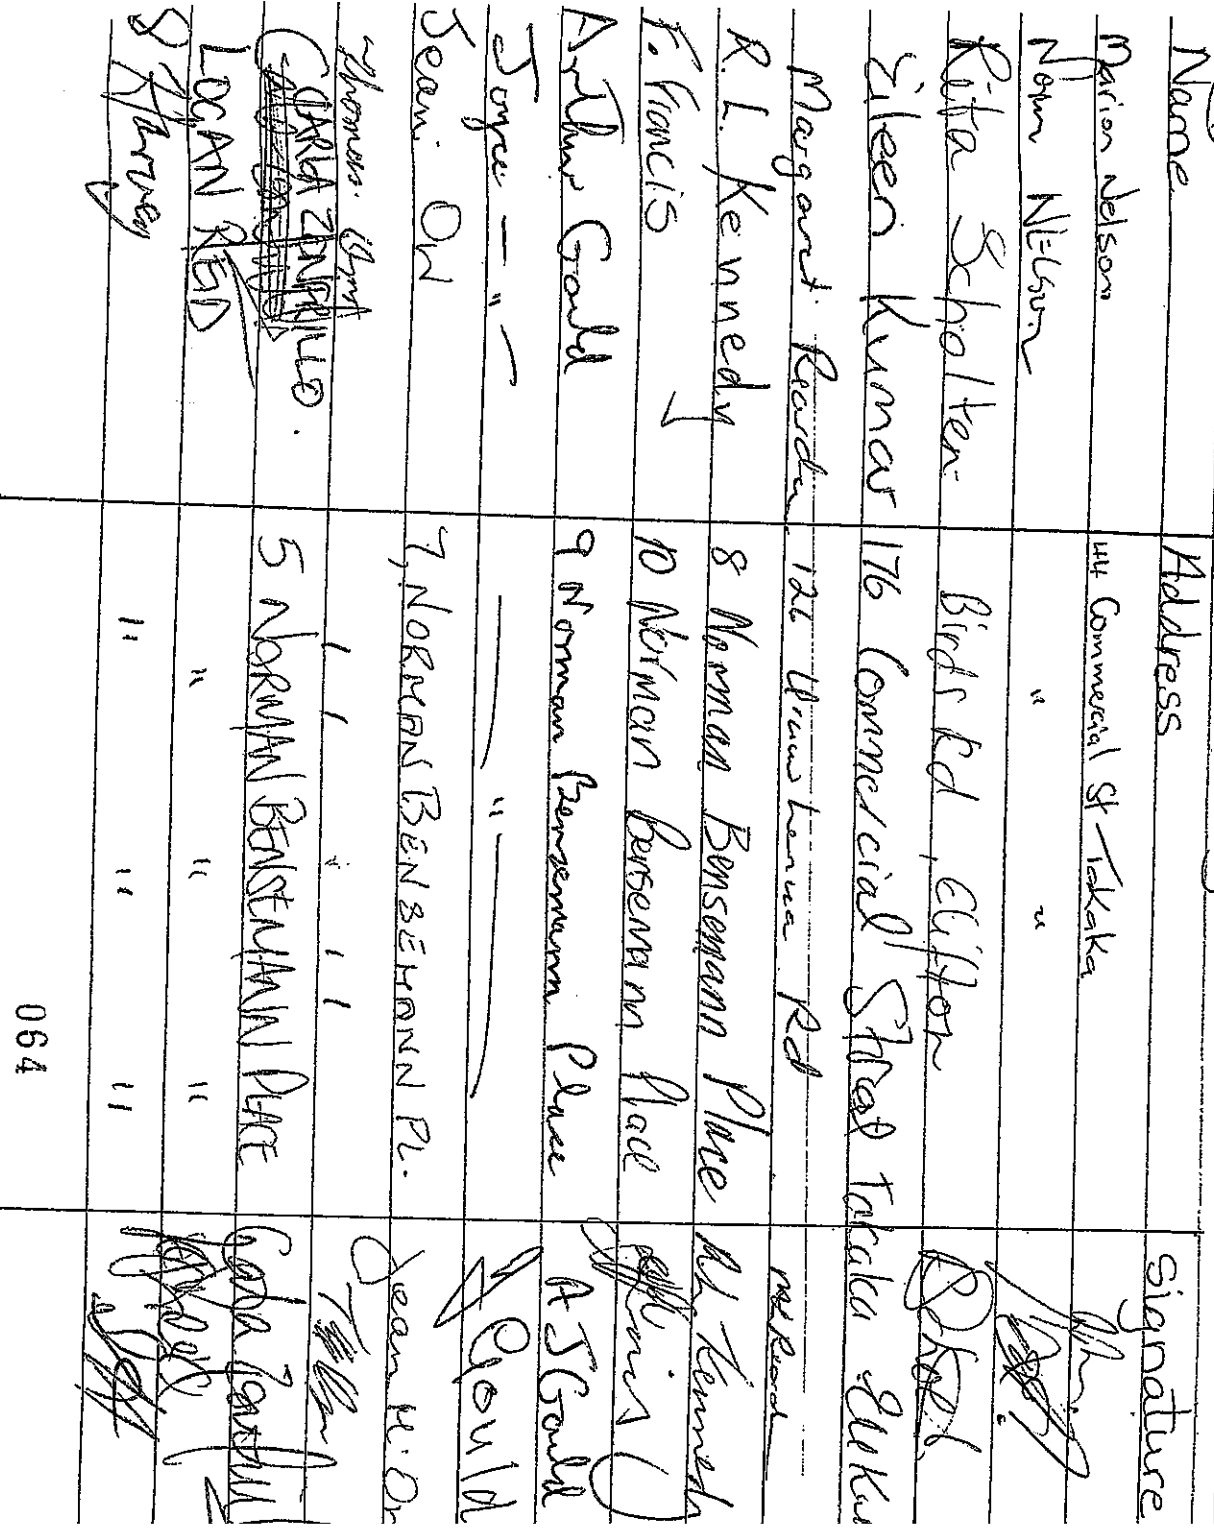 Name Address Signature
Marion Nelson 44 Commercial St Takaka
Norm NELSON " "
Rita Scholten Birds Rd, Clifton
Eileen Kumar 176 Commercial Street Takaka
Margaret 126 Rd
R. L. Kennedy 8 Norman Bensemann Place
F. Francis 10 Norman Bensemann Place
Arthur Gould 9 Norman Bensemann Place A J Gould
Joyce — " — — " — Gould
Jean. OW 7, NORMAN BENSEMANN PL. Jean M. O
Thomas.
CARLA ZONFRILLO. 5 NORMAN BENSEMANN PLACE
LOGAN REID " " "
" " "
064